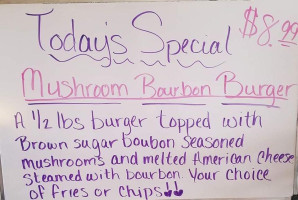 Today's Special $8.99
Mushroom Bourbon Burger
A 1/2 lbs burger topped with
Brown sugar boubon seasoned
mushrooms and melted American cheese
steamed with bourbon. Your choice
of fries or chips